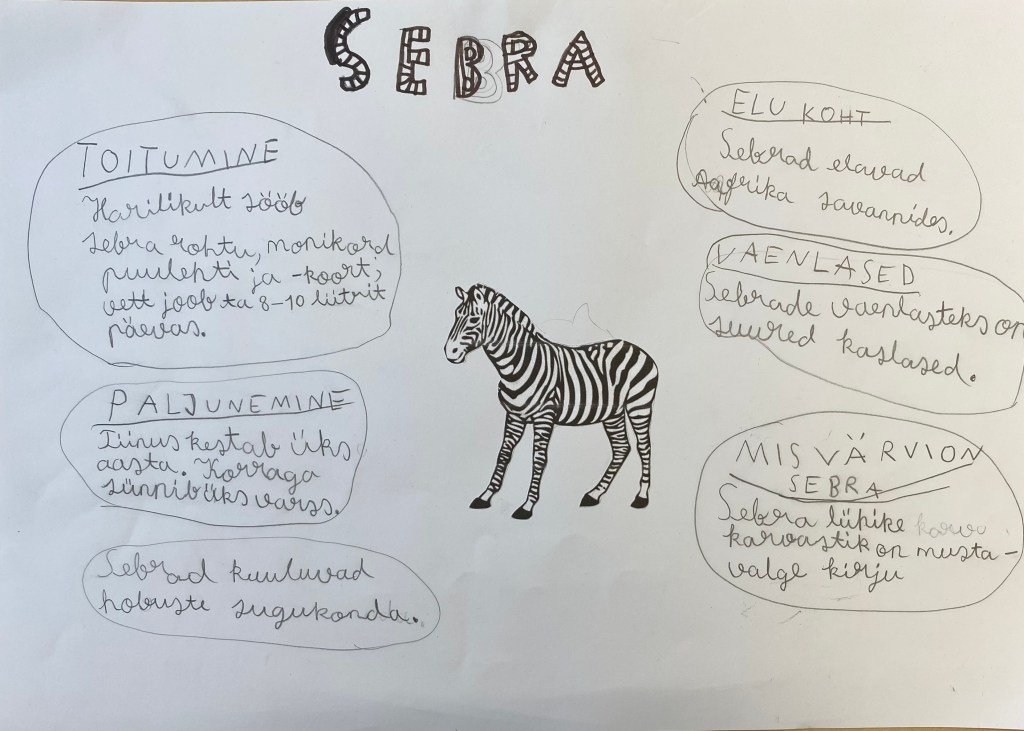 SEBRA
TOITUMINE
Harilikult sööb
sebra rohtu, monikord
puulehti ja -koort;
vett joob ta 8-10 liitrit
päevas.
PALJUNEMINE
Tiinus kestab üks
aasta. Korraga
sünnib üks varss.
Sebrad kuuluvad
hobuste sugukonda.
ELU KOHT
Sebrad elavad
Aafrika savannides.
VAENLASED
Sebrade vaenlasteks on
suured kaslased.
MIS VÄRVI ON
SEBRA
Sebra lühike karva
karvastik on musta-
valge kirju